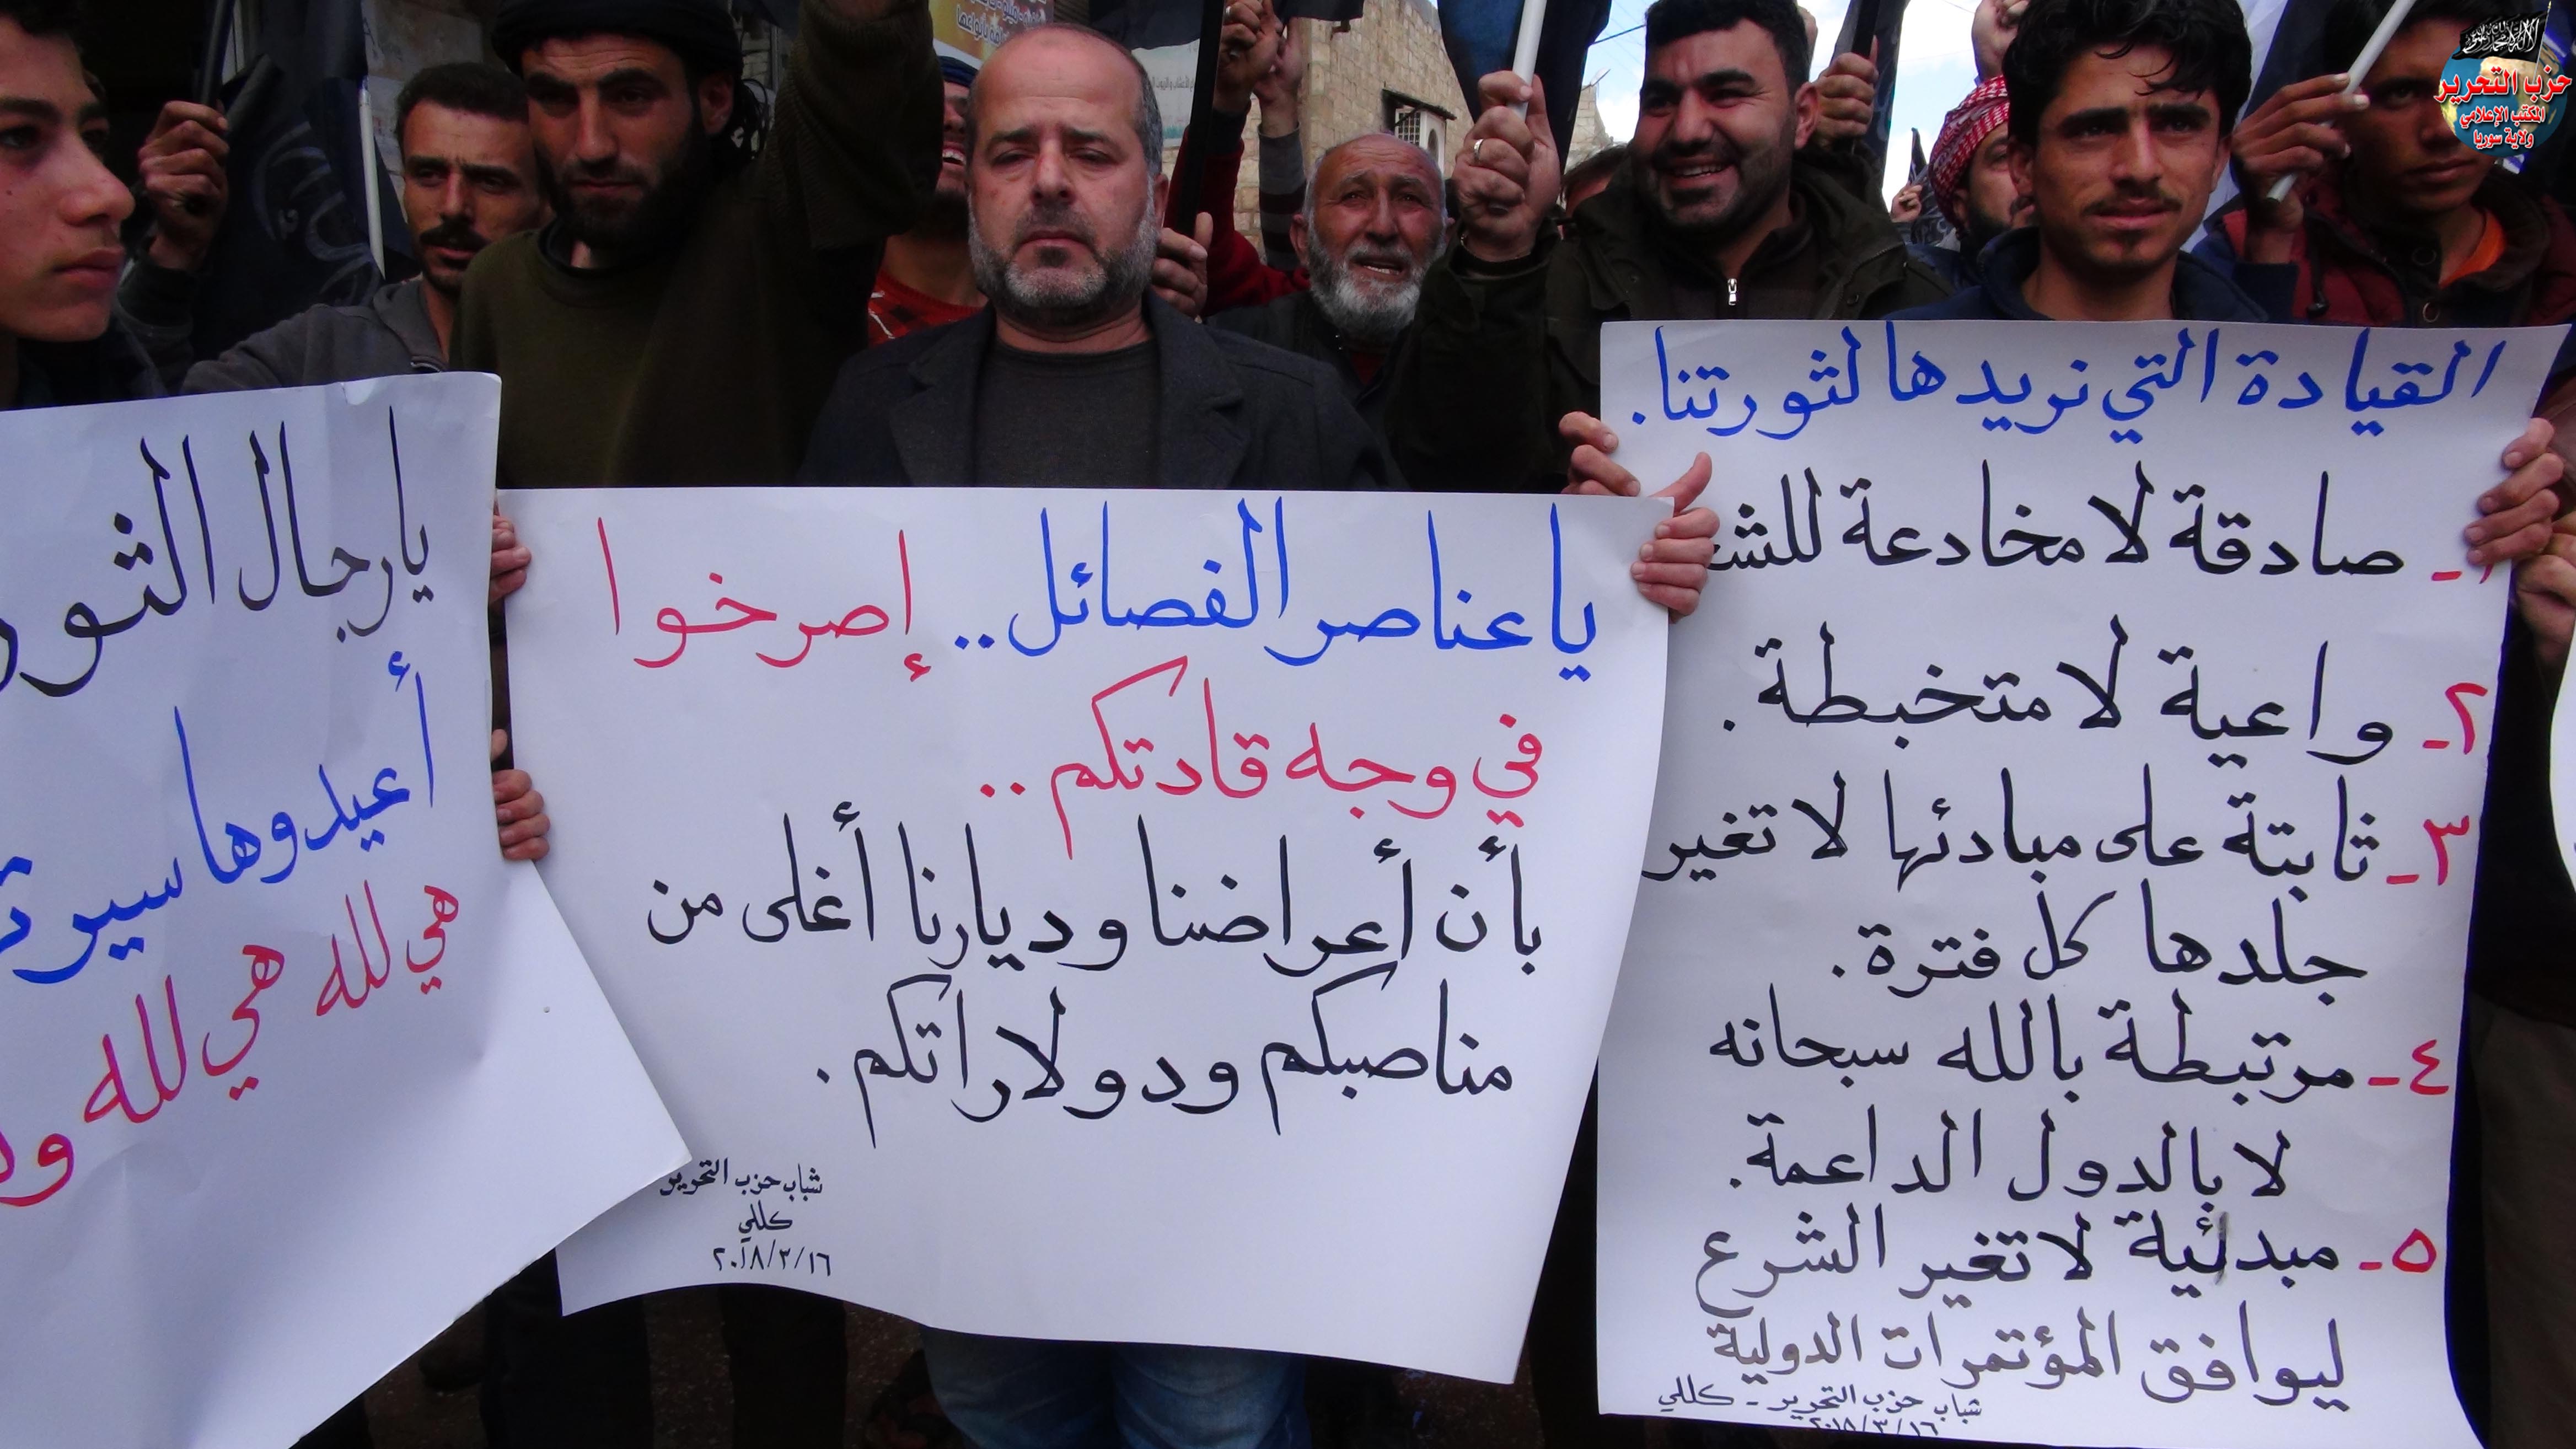 حزب التحرير
المكتب الإعلامي
ولاية سوريا
القيادة التي نريدها لثورتنا.
١- صادقة لا مخادعة
٢- واعية لا متخبطة.
٣- ثابتة على مبادئها لا تغير
جلدها كل فترة.
٤- مرتبطة بالله سبحانه
لا بالدول الداعمة.
٥- مبدئية لا تغير الشرع
ليوافق المؤتمرات الدولية
شباب حزب التحرير - كللي
٢٠١٨/٣/١٦
يا عناصر الفصائل.. إصرخوا
في وجه قادتكم..
بأن أعراضنا وديارنا أغلى من
مناصبكم ودولاراتكم.
شباب حزب التحرير
كللي
٢٠١٨/٣/١٦
يا رجال
أعيدوها
هي لله هي لله